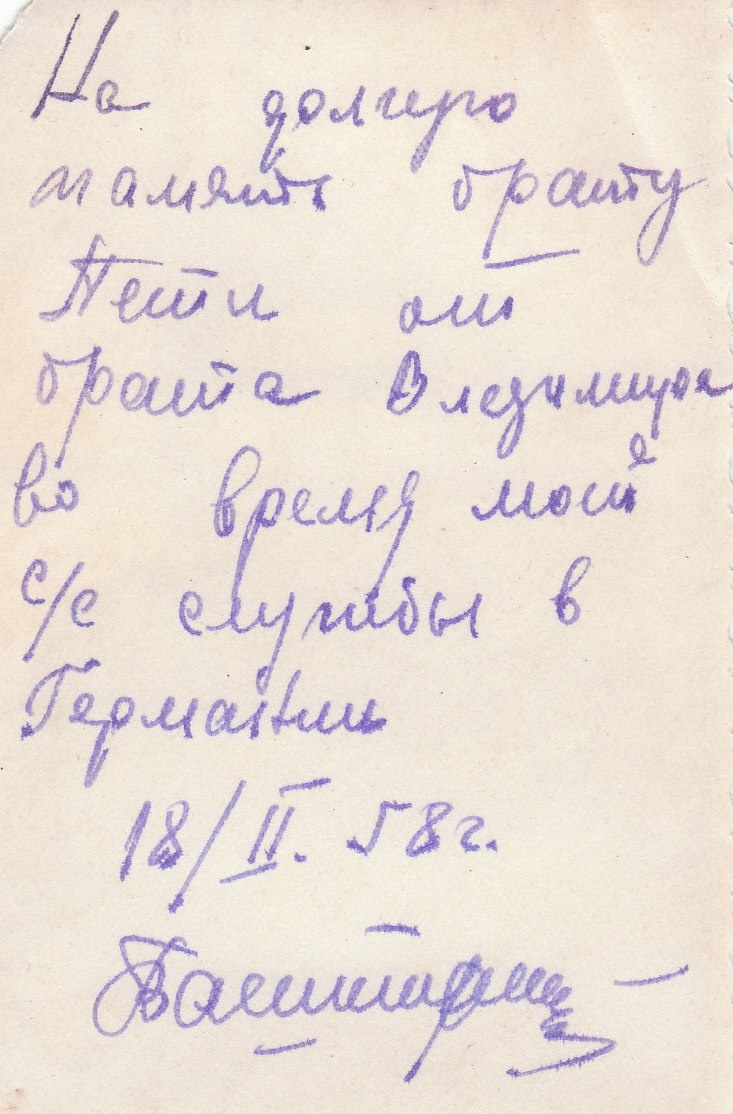 На долгую
память брату
Пети от
брата Владимира
во время моей
с/с службы в
Германии
18/II. 58г.